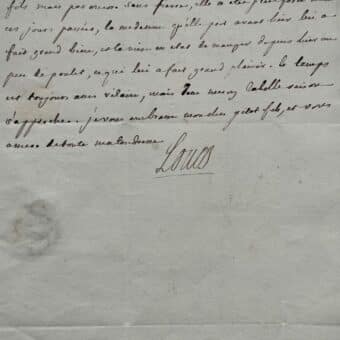 fols mais pas encore sans fievre, elle a eté plus
ces jours passés, la medecine qu'elle prit avant hier lui a
fait grand bien, et la mise en etat de manger depuis hier un
peu de poulet, ce qui lui a fait grand plaisir. le temps
est toujours assez vilain, mais Dieu mercy la belle saison
s'approche. je vous embrasse mon cher petit fils, et vous
aime de toute ma tendresse
Louis